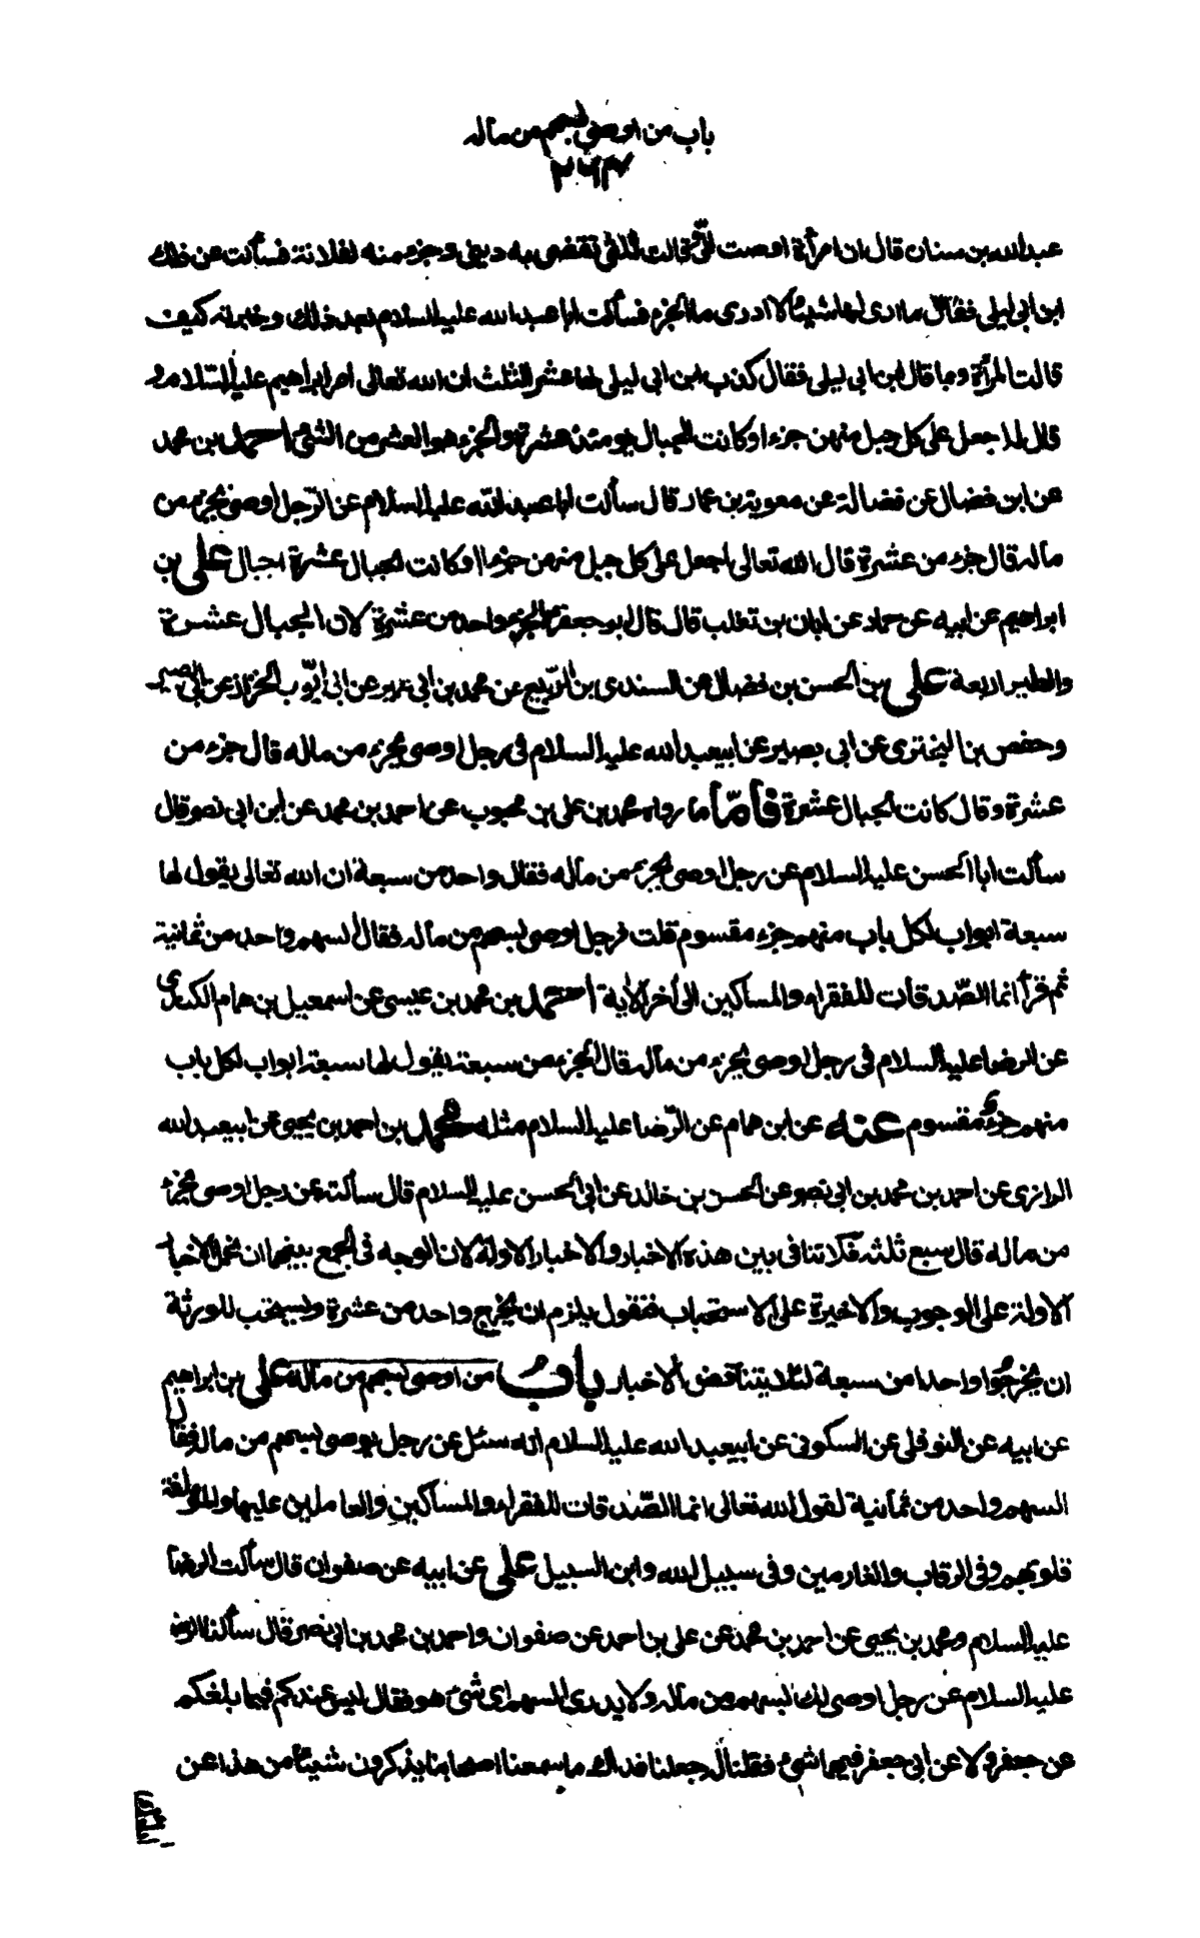 باب من اوصى بسهم من ماله
٢٦٣
عبدالله بن سنان قال ان امرأة اوصت الىّ وقالت ثلثى تقضى به دينى وجزء منه لفلانة فسألت عن ذلك
ابن ابى ليلى فقال ما ارى لها شيئا لا ادرى ما الجزء فسألت ابا عبدالله عليه السلام بعد ذلك وخبرته كيف
قالت المرأة وما قال ابن ابى ليلى فقال كذب ابن ابى ليلى لها عشر الثلث ان الله تعالى امر ابراهيم عليه السلام و
قال له اجعل على كل جبل منهن جزءا وكانت الجبال يومئذ عشرة والجزء هو العشر من الشئ احمد بن محمد
عن ابن فضال عن فضالة عن معوية بن عمار قال سألت ابا عبدالله عليه السلام عن الرّجل اوصى بجزء من
ماله قال جزء من عشرة قال الله تعالى اجعل على كل جبل منهن جزءا وكانت الجبال عشرة اجبال على بن
ابراهيم عن ابيه عن حماد عن ابان بن تغلب قال قال ابو جعفر الجزء واحد من عشرة لان الجبال عشرة
والطير اربعة على بن الحسن بن فضال عن السندى بن الرّبيع عن محمد بن ابى عن ابى ايّوب الخزاز عن ابى بصير
وحفص بن البخترى عن ابى بصير عن ابيعبدالله عليه السلام فى رجل اوصى بجزء من ماله قال جزء من
عشرة وقال كانت الجبال عشرة فأمّا ما رواه محمد بن على بن محبوب عن احمد بن محمد عن ابن ابى نصر قال
سألت ابا الحسن عليه السلام عن رجل اوصى بجزء من ماله فقال واحد من سبعة ان الله تعالى يقول لها
سبعة ابواب لكل باب منهم جزء مقسوم قلت فرجل اوصى بسهم من ماله فقال السهم واحد من ثمانية
ثم قرأ انما الصّدقات للفقراء والمساكين الى أخر الأية احمد بن محمد بن عيسى عن اسمعيل بن همام الكندى
عن الرضا عليه السلام فى رجل اوصى بجزء من ماله قال الجزء من سبعة يقول لها سبعة ابواب لكل باب
منهم جزء مقسوم عنه عن ابن همام عن الرّضا عليه السلام مثله محمد بن احمد بن يحيى عن ابيعبدالله
الرازى عن احمد بن محمد بن ابى نصر عن الحسن بن خالد عن ابى الحسن عليه السلام قال سألته عن رجل اوصى بجزء
من ماله قال سبع ثلثه فلا تنافى بين هذه الاخبار والاخبار الاولة لان الوجه فى الجمع بينهما ان نحمل الاخبار
الاولة على الوجوب والاخيرة على الاستحباب فنقول يلزم ان يخرج واحد من عشرة ويستحب للورثة
ان يخرجوا واحدا من سبعة لئلا يتناقض الاخبار باب من اوصى بسهم من ماله على بن ابراهيم
عن ابيه عن النوفلى عن السكونى عن ابيعبدالله عليه السلام انه سئل عن رجل يوصى بسهم من ماله فقال
السهم واحد من ثمانية لقول الله تعالى انما الصّدقات للفقراء والمساكين والعاملين عليها والمؤلفة
قلوبهم وفى الرقاب والغارمين وفى سبيل الله وابن السبيل على عن ابيه عن صفوان قال سألت الرضا
عليه السلام ومحمد بن يحيى عن احمد بن محمد عن على بن احمد عن صفوان واحمد بن محمد بن ابى نصر قال سألنا الرضا
عليه السلام عن رجل اوصى لك بسهم من ماله ولا يدرى السهم اى شئ هو فقال ليس عندكم فيما بلغكم
عن جعفر ولا عن ابى جعفر فيها شئ فقلنا له جعلنا فداك ما سمعنا اصحابنا يذكرون شيئا من هذا عن